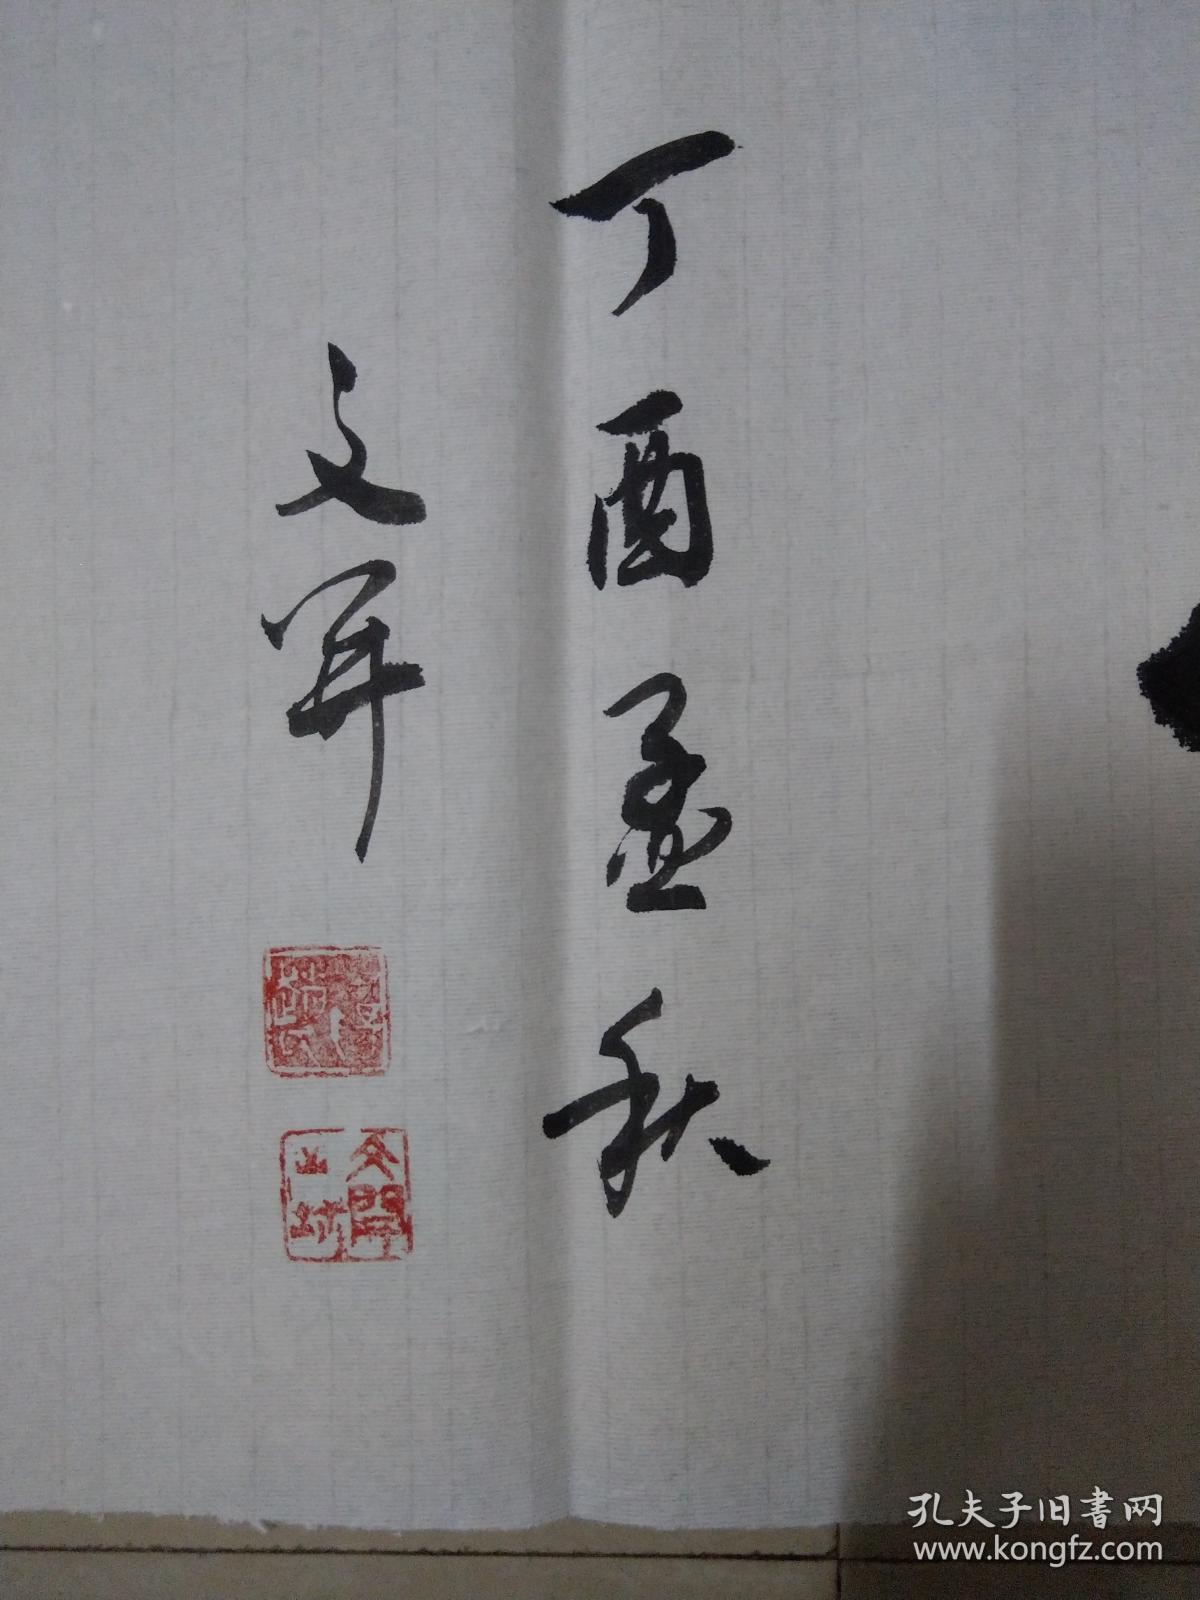 丁酉孟秋
文开
文開之鉨
孔夫子旧書网
www.kongfz.com